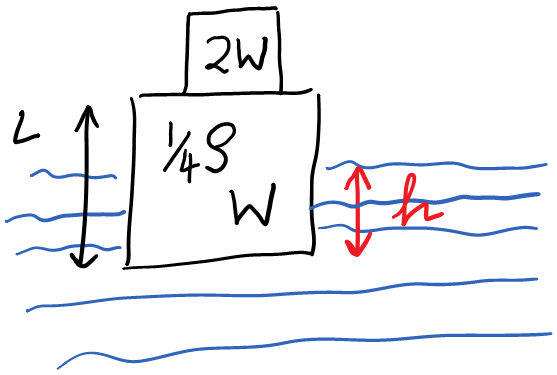 2W
L
¼ρ
W
h